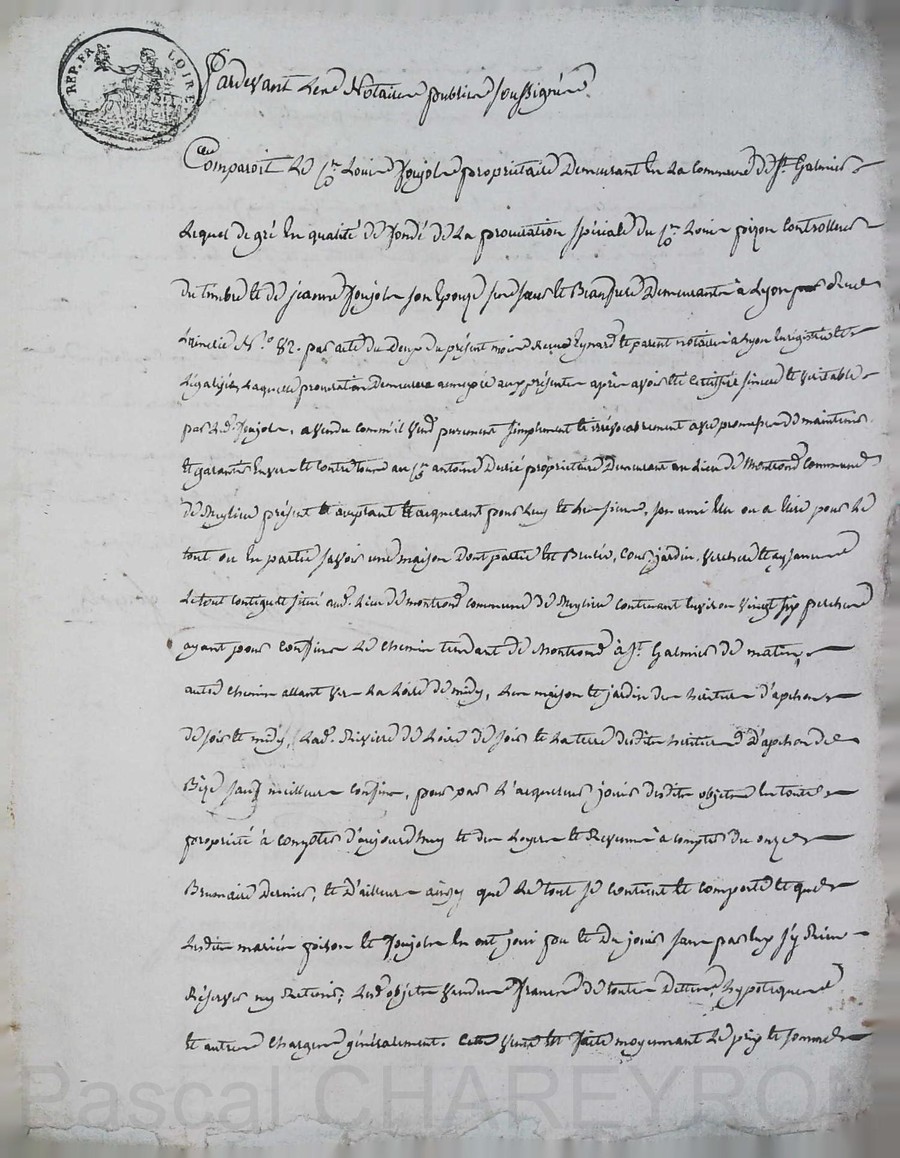 REP. FRA. LOIRE
Pardevant Les Notaires publics soussignés
Comparoit Le Sr. Louis Joujols propriétaire Demeurant En La Commune de St. Galmier
Lequel de gré En qualité de fondé de La procuration spéciale du Sr. Louis pizon Controlleur
du timbre et de jeanne Joujols son Epouze ses sœur et Beaufrere Demeurants à Lyon rue
N.o 82. par acte du Deux du présent mois Reçue Eynard et parent notaires à Lyon Enregistrée et
Légalisée, Laquelle procuration Demeurera annexée aux présentes après avoir été Certiffiée sincere et véritable
par Led. Joujols, a vendu comm'il vend purement simplement et irrévocablement avec promesse de maintenir
et garantir Envers et contre tous au Sr. antoine propriétaire Demeurant au Lieu de Montrond Commune
de Meylieu présent et acceptant et acquerant pour Luy et Les siens, son ami Elu ou a Elire pour Le
tout ou En partie savoir une maison Dont partie Est Brulée, Cour, jardin, verchere et aysances
Le tout contigu et situé aud. Lieu de montrond commune de Meylieu contenant Environ vingt six perches
ayant pour Confins Le chemin tendant de Montrond à St. Galmier de matin,
autre chemin allant vers La Loire de midy, Les maison et jardin des héritiers d'apchon
de soir et midy, Lad. Riviere de Loire de soir et La terre desdits héritiers D'apchon de
Bize sauf meilleurs confins, pour par L'acquereur jouir desdits objets En toute
propriété à compter d'aujourd'huy et des Loyers et Revenus à compter du onze
Brumaire Dernier, et D'ailleurs ainsy que Le tout se contient et comporte et que
Lesdits mariés pizon et Joujols En ont joui pu et du jouir sans par luy s'y Rien
Réserver ny Retenir, Lesd. objets vendus francs de toutes Dettes, hypoteques
et autres charges généralement. Cette vente Est faite moyennant Le prix et somme
Pascal CHAREYRON